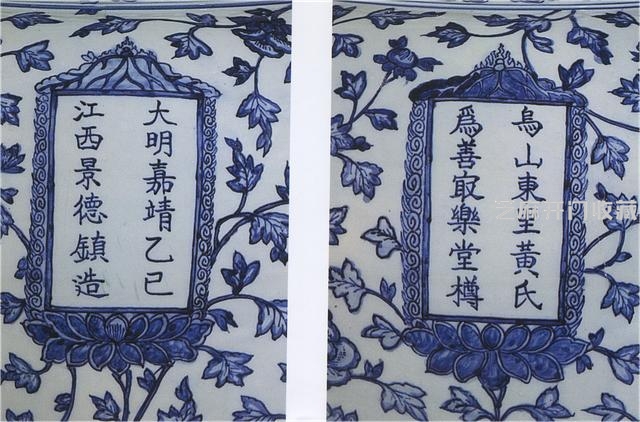 大明嘉靖乙巳
江西景德鎮造
烏山東里黃氏
爲善冣樂堂樽
芝麻开门收藏